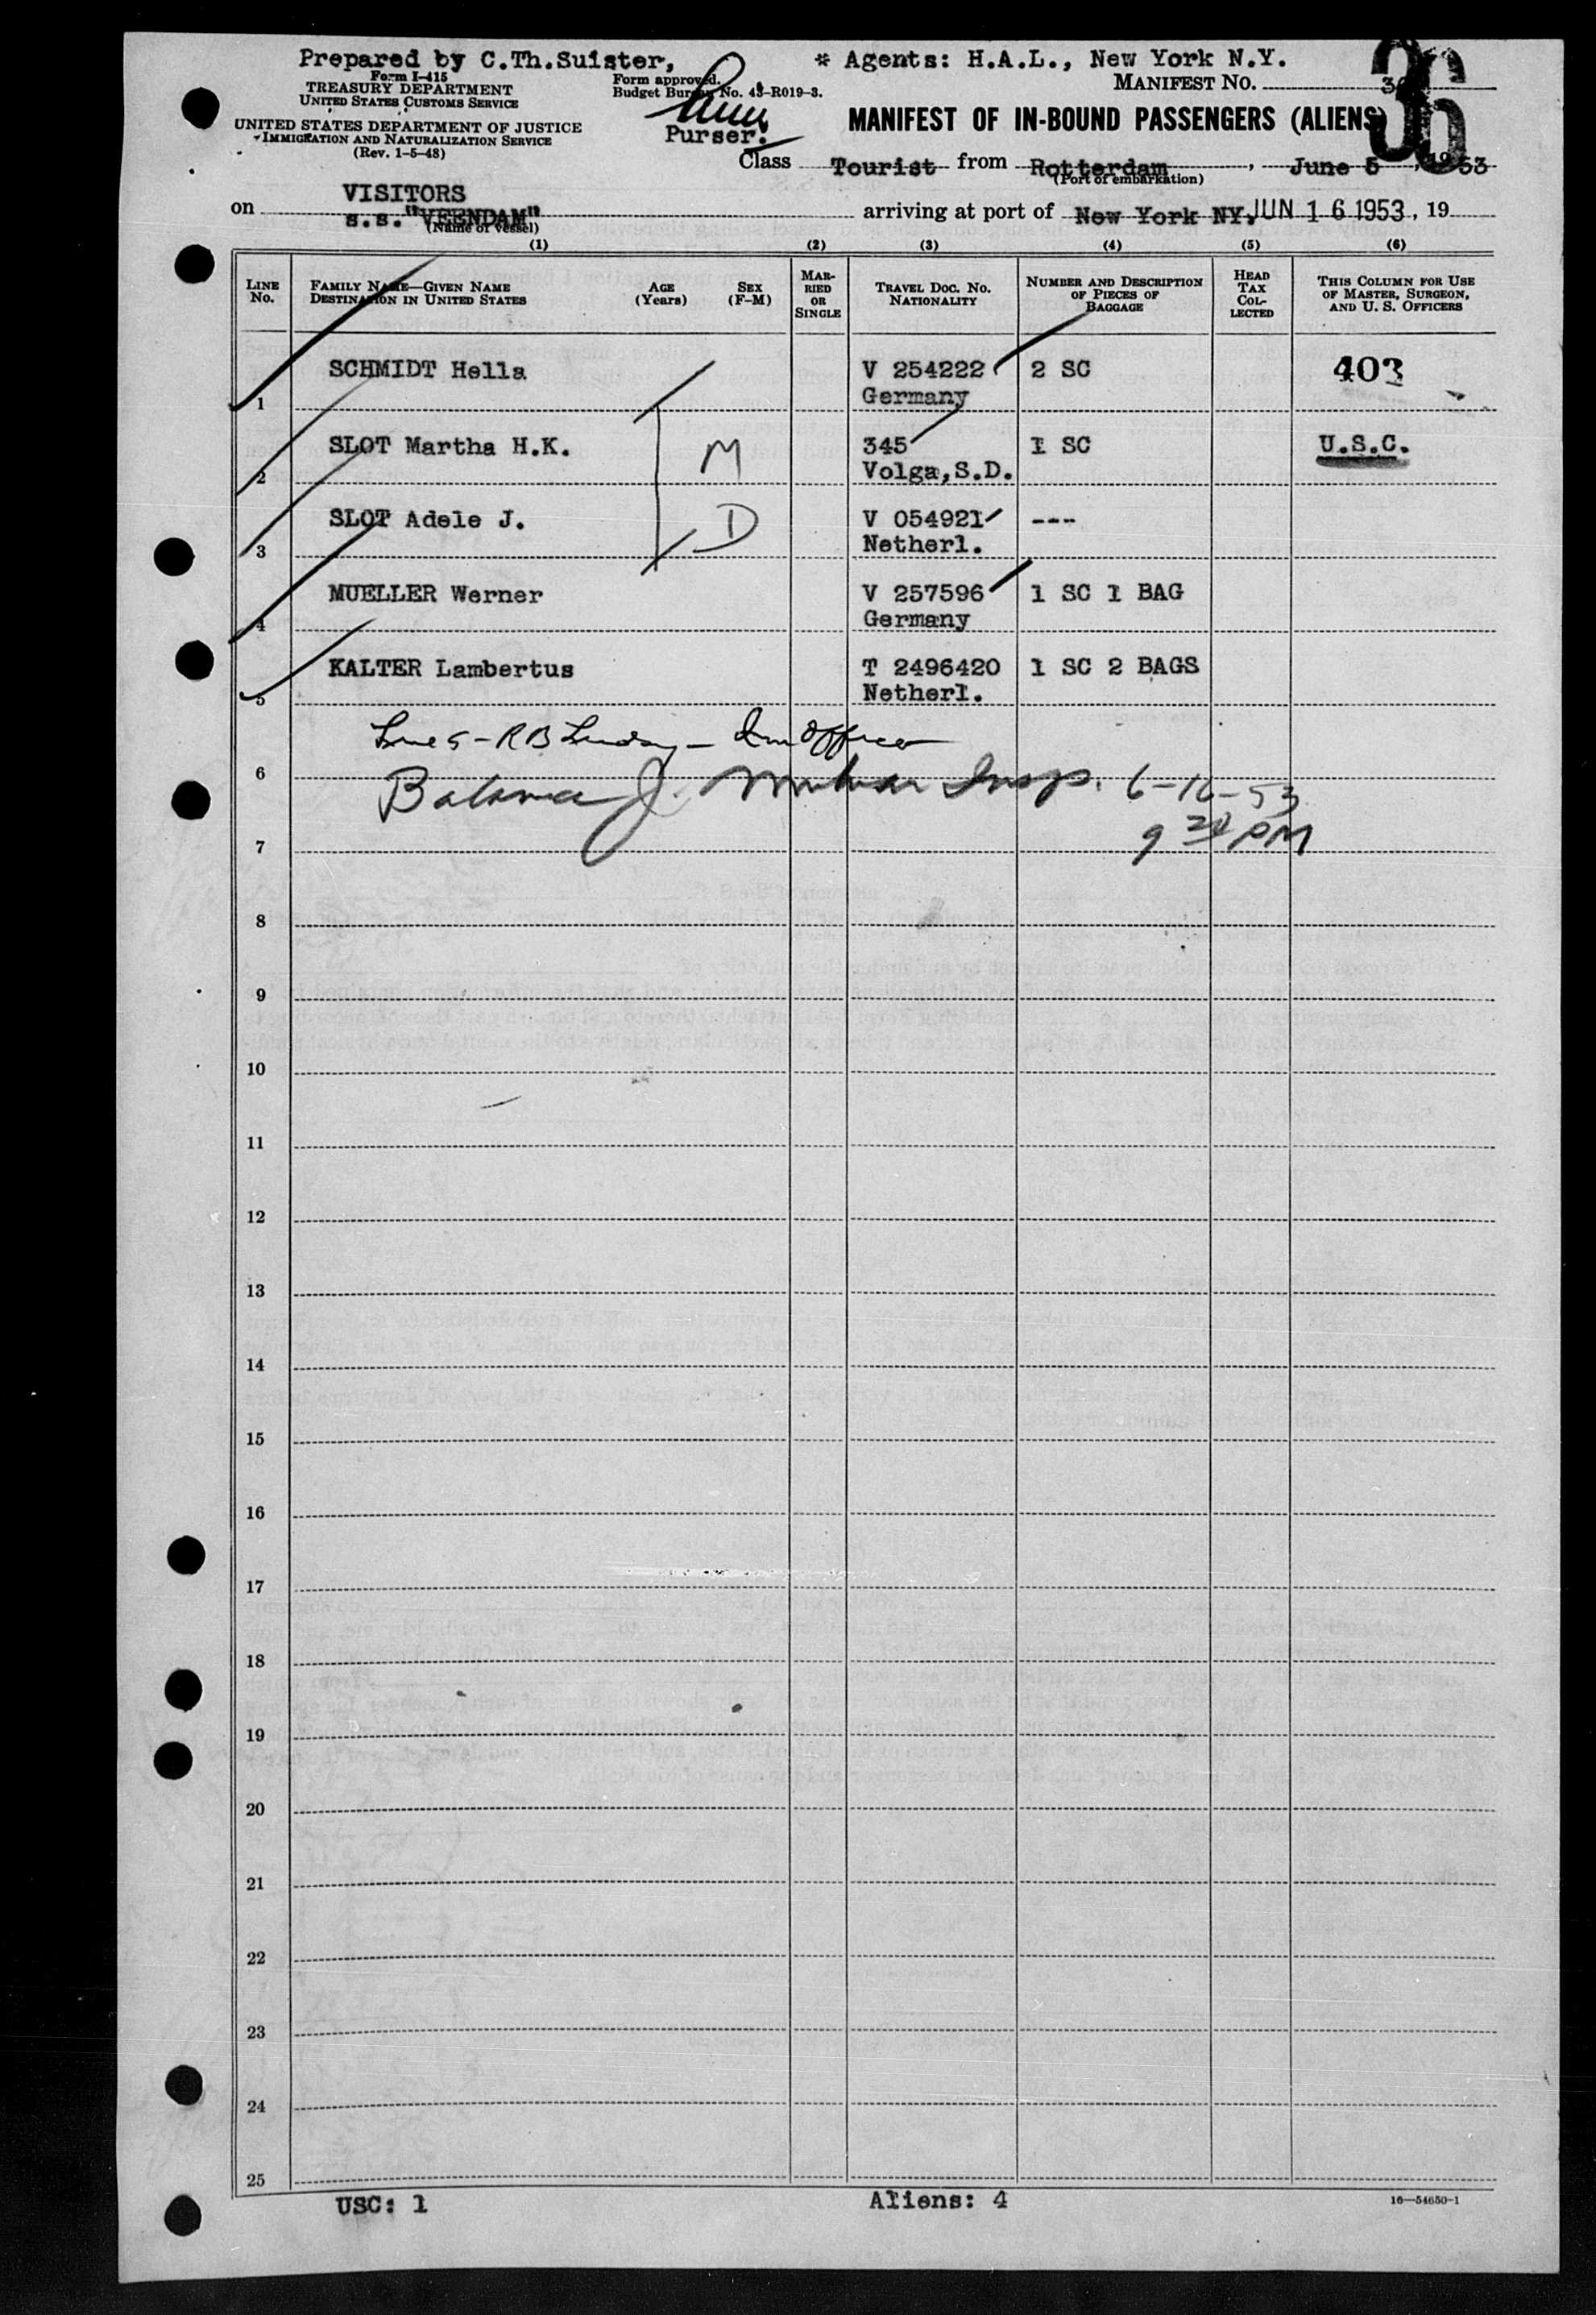 Prepared by C.Th.Suister,
* Agents: H.A.L., New York N.Y.
Form I-415
TREASURY DEPARTMENT
UNITED STATES CUSTOMS SERVICE
UNITED STATES DEPARTMENT OF JUSTICE
IMMIGRATION AND NATURALIZATION SERVICE
(Rev. 1-5-48)
Form approved.
Budget Bureau No. 43-R019-3.
Purser.
MANIFEST NO. 36
36
MANIFEST OF IN-BOUND PASSENGERS (ALIENS)
Class Tourist from Rotterdam, June 5, 1953
(Port of embarkation)
VISITORS
on s.s. "VEENDAM" arriving at port of New York NY, JUN 16 1953, 19
(Name of vessel)
(1) (2) (3) (4) (5) (6)
LINE No. FAMILY NAME—GIVEN NAME DESTINATION IN UNITED STATES AGE (Years) SEX (F-M) MARRIED OR SINGLE TRAVEL DOC. NO. NATIONALITY NUMBER AND DESCRIPTION OF PIECES OF BAGGAGE HEAD TAX COLLECTED THIS COLUMN FOR USE OF MASTER, SURGEON, AND U. S. OFFICERS
1 SCHMIDT Hella V 254222 2 SC 403
Germany
2 SLOT Martha H.K. M 345 1 SC U.S.C.
Volga,S.D.
3 SLOT Adele J. D V 054921 ---
Netherl.
4 MUELLER Werner V 257596 1 SC 1 BAG
Germany
5 KALTER Lambertus T 2496420 1 SC 2 BAGS
Netherl.
Line 5 - RB Lindsay - Im Officer
6 Balance J. Insp. 6-16-53
7 9 30 PM
8
9
10
11
12
13
14
15
16
17
18
19
20
21
22
23
24
25
USC: 1 Aliens: 4 16—54650-1